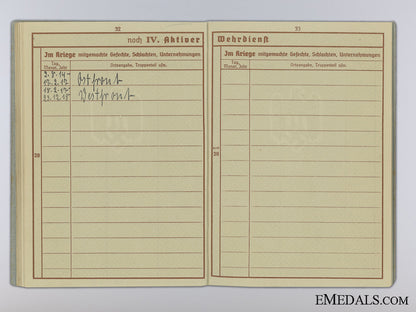 32
noch IV. Aktiver
Im Kriege mitgemachte Gefechte, Schlachten, Unternehmungen
Tag, Monat, Jahr
Ortsangabe, Truppenteil usw.
Ostfront
Westfront
20
33
Wehrdienst
Im Kriege mitgemachte Gefechte, Schlachten, Unternehmungen
Tag, Monat, Jahr
Ortsangabe, Truppenteil usw.
20
EMEDALS.COM